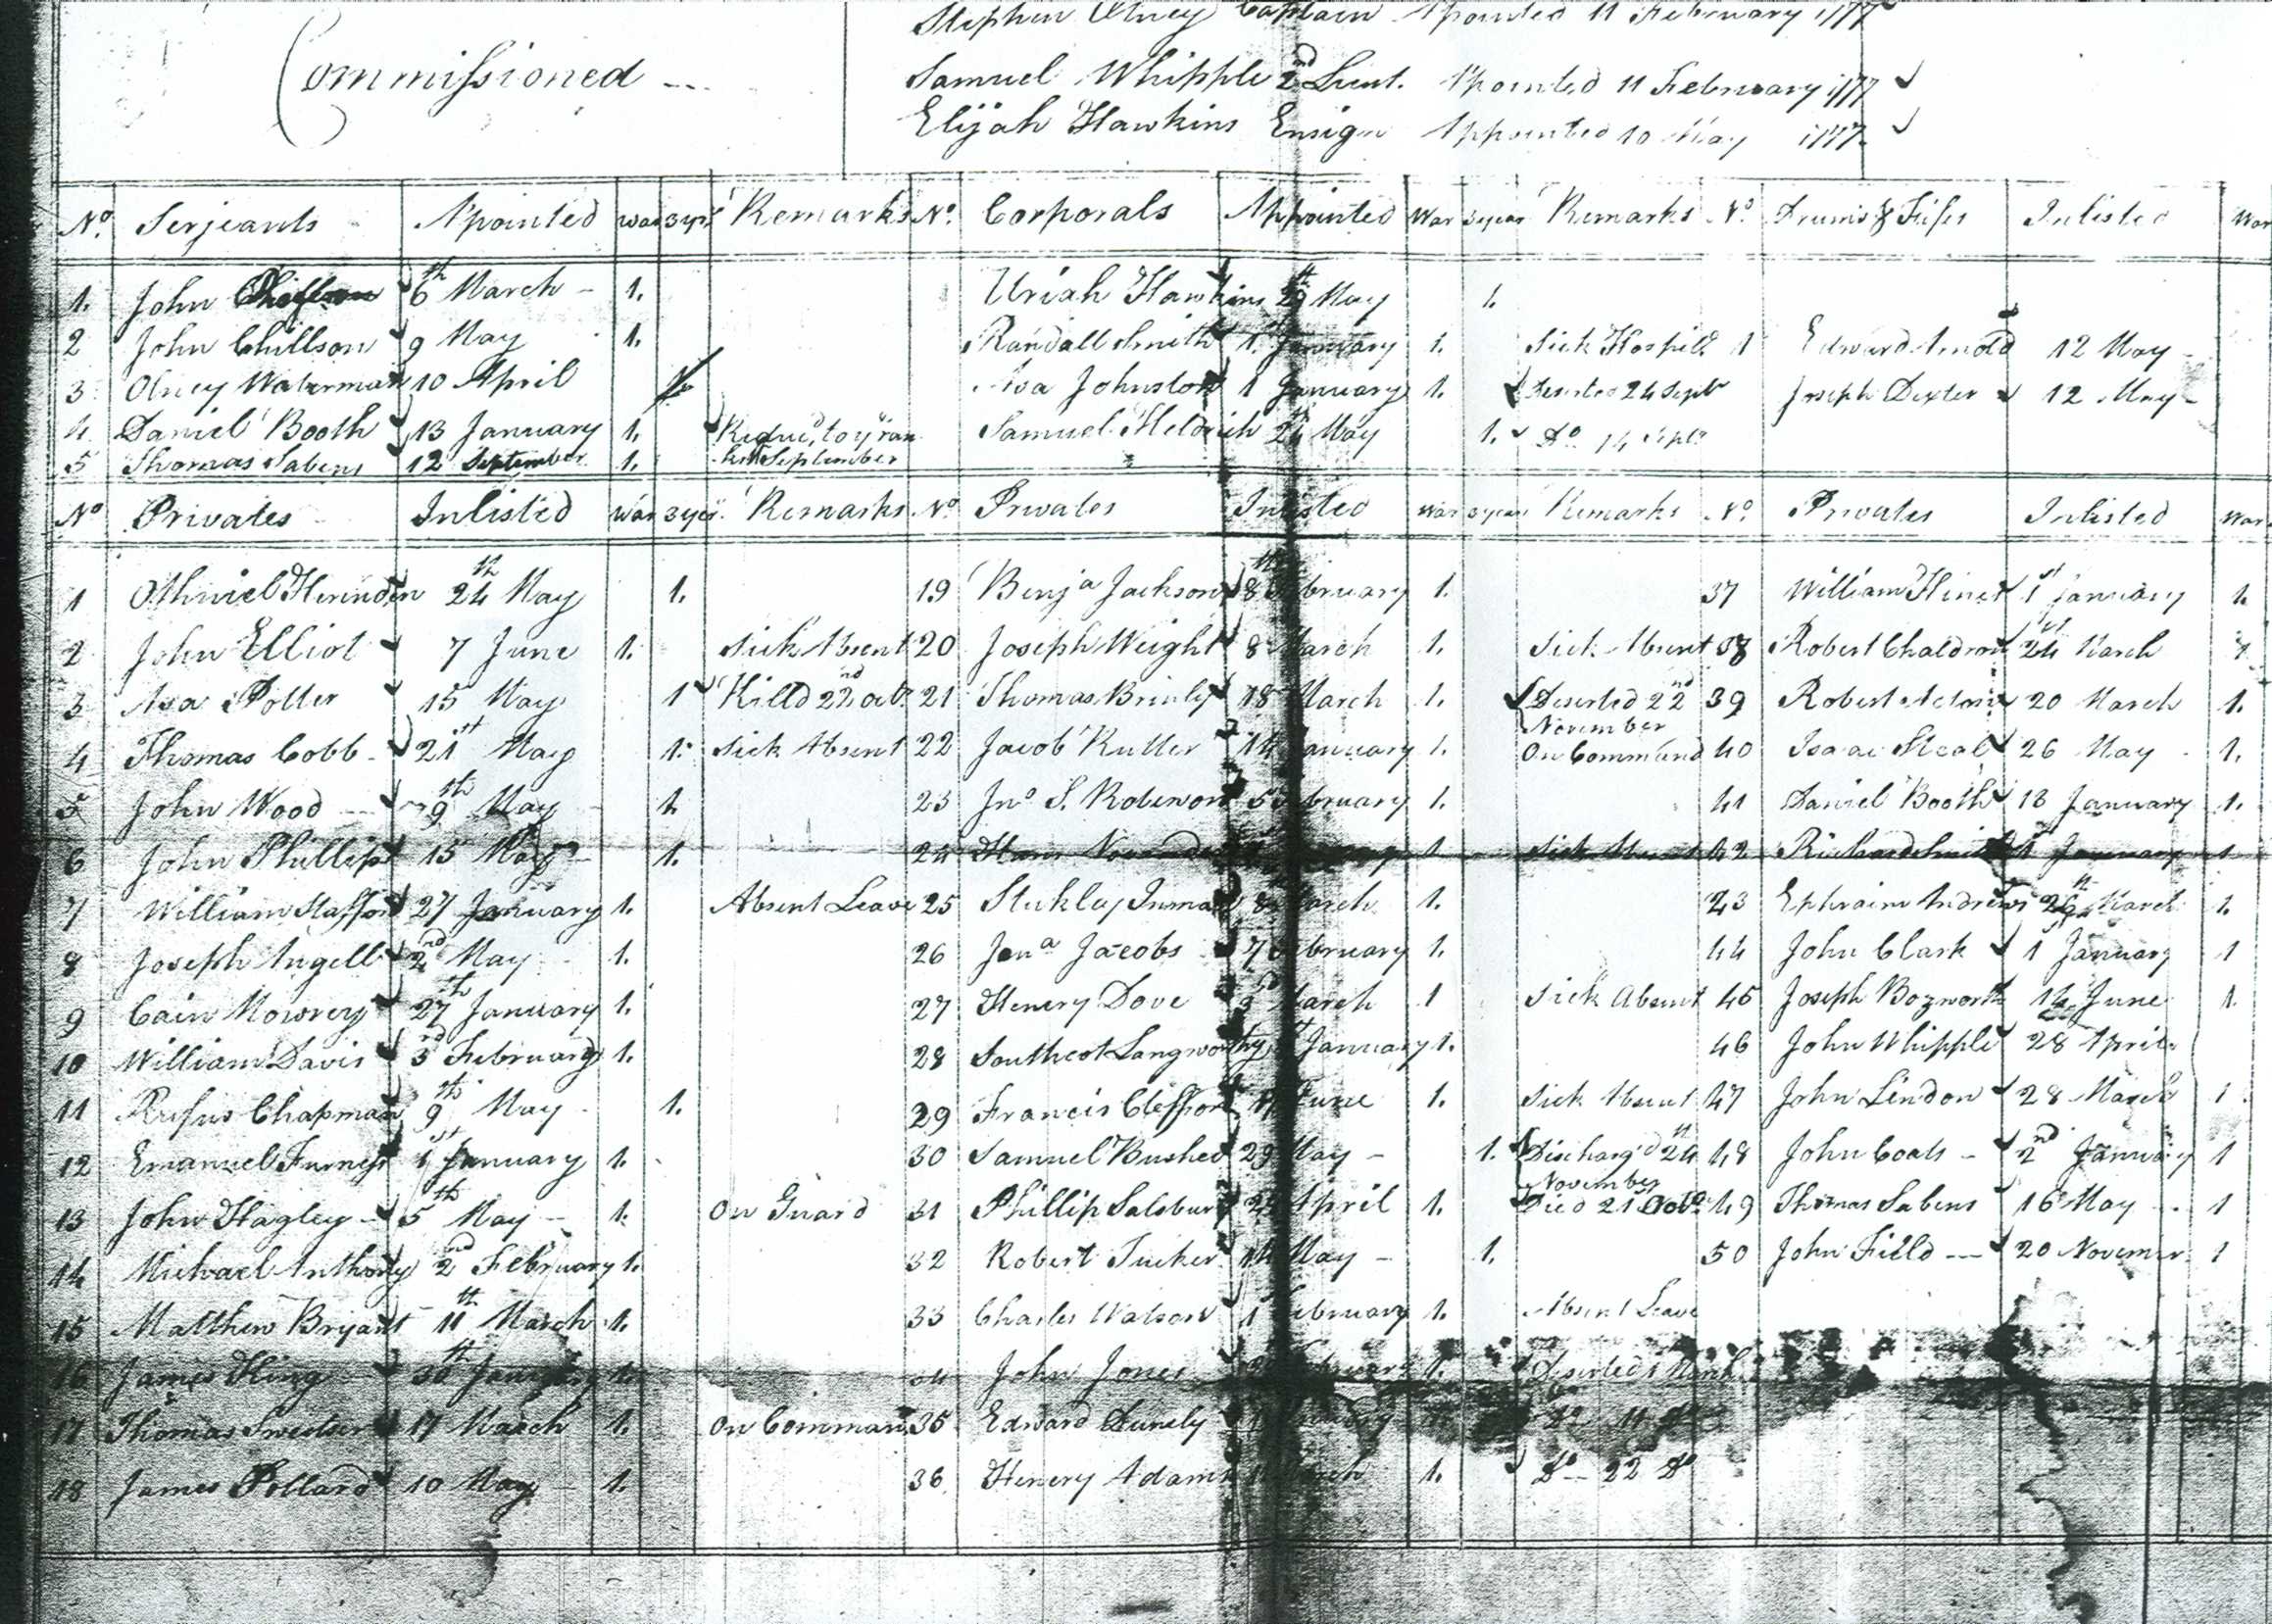 Stephen Olney Captain Apointed 11 February 1777
Commissioned
Samuel Whipple 2nd Lieut. Apointed 11 February 1777
Elijah Hawkins Ensign Appointed 10 May 1777
No. Serjeants Apointed war 3 yrs Remarks No. Corporals Appointed War 3 year Remarks No. Drums & Fifes Inlisted War
1. John 6th March 1. Uriah Hawkins May 1.
2 John Chillson 9 May 1. Randall Smith 1 January 1. Sick Hospitl 1 Edward Arnold 12 May
3 Olney Waterman 10 April Asa Johnston 1 January 1. Deserted 24 Sept Joseph Dexter 12 May
4 Daniel Booth 13 January 1. Reduc'd to ye ran Samuel May 1. Do 14 Sept
5 Thomas Sabens 12 September 1. September
No Privates Inlisted war 3 yrs. Remarks No Privates Inlisted war 3 year Remarks No. Privates Inlisted War
1 Othniel Herinden 24th May 1. 19 Benja Jackson 8th February 1. 37 William 1st January 1.
2 John Elliot 7 June 1. Sick Absent 20 Joseph Weight 8 March 1. Sick Absent 38 Robert 24 March
3 Asa Potter 15 May 1 Killd 22nd oct. 21 Thomas Brinly 18 March 1. Deserted 22nd 39 Robert 20 March 1.
November
4 Thomas Cobb 21st May 1. Sick Absent 22 Jacob Kuller 14 January 1. On Command 40 Isaac Steal 26 May 1.
5 John Wood 9th May 1. 23 Jno S. Robinson 5 February 1. 41 Daniel Booth 13 January 1.
6 John Phillips 15 May 1. 24 1 Sick Absent 42 Richard Smith 1 January 1
7 William Stafford 27 January 1. Absent Leave 25 Stukley Inman 8 March 1. 43 Ephraim Andrews March 1.
8 Joseph Angell 2nd May 1. 26 Jona Jacobs 7 February 1. 44 John Clark 1 January 1
9 Cain Mowrey 27th January 1. 27 Henery Dove 3d March 1 Sick Absent 45 Joseph Bozworth 14 June 1.
10 William Davis 3rd February 1. 28 Southcot Langworthy January 1. 46 John Whipple 28 April
11 Rufus Chapman 9th May 1. 29 Francis Cleffort June 1. Sick Absent 47 John Lindon 28 March 1.
12 Emanuel Furness 1st January 1. 30 Samuel Bushee 29 May 1. Discharg'd 24th 48 John Coats 2nd January 1
November
13 John Hagley 5th May 1. On Guard 31 Phillip Salsbury April 1. Died 21 Octo. 49 Thomas Sabens 16 May 1
14 Michael Anthony 2nd February 1. 32 Robert Tucker 14 May 1. 50 John Field 20 Novemer. 1
15 Matthew Bryant 11th March 1. 33 Charles Watson 1 February 1. Absent Leave
16 James King 30th January 1. 34 John Jones 1. Deserted March
17 Thomas Sweetser 17 March 1. On Comman 35 Edward Do 11 Do
18 James Pollard 10 May 1. 36 Henery Adams March 1. Do 22 Do